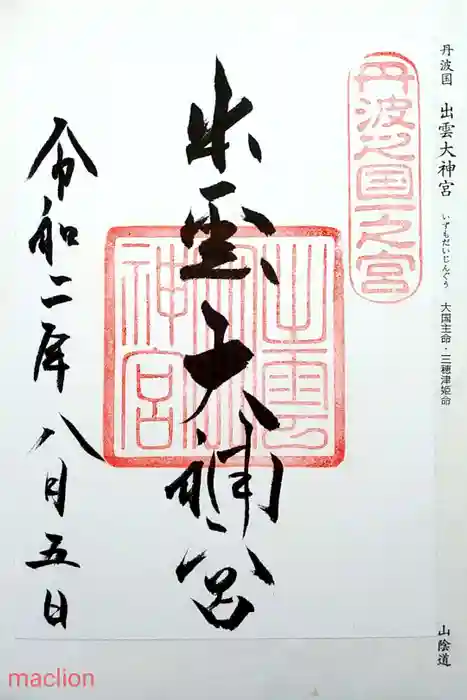 丹波国 出雲大神宮 いずもだいじんぐう 大国主命・三穂津姫命
山陰道
丹波之国一之宮
出雲大神宮
出雲大神宮
令和二年八月五日
maclion